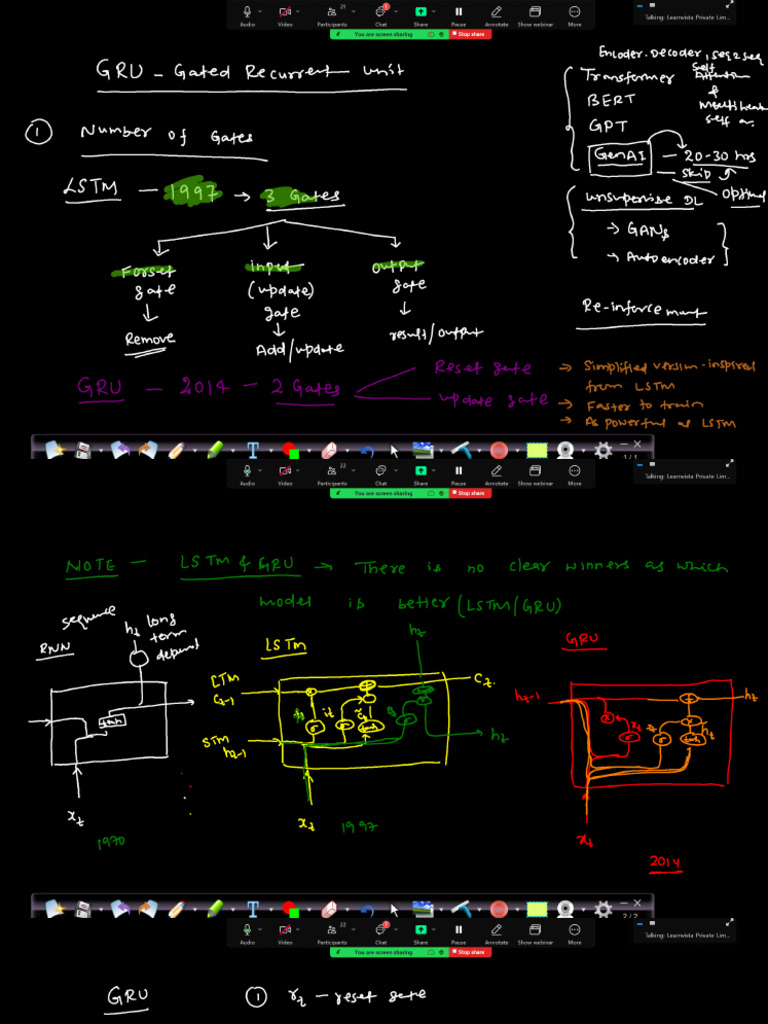 Audio Video Participants Chat Share Pause Annotate Show webinar More
21
1
You are screen sharing Stop share
Talking: Learnvista Private Lim...
GRU - Gated Recurrent unit
Encoder.Decoder, seq2seq
Transformer Self Attention
& Multihead self a.
BERT
GPT
GenAI — 20-30 hrs
— Skip
optional
① Number of Gates
LSTM — 1997 → 3 Gates
unsupervise DL
→ GANs
→ Autoencoder
Re-inforcement
Forget gate
↓
Remove
input (update) gate
↓
Add/update
output gate
↓
result/output
GRU — 2014 — 2 Gates
Reset gate
update gate
→ Simplified version-inspired from LSTM
→ Faster to train
→ As powerful as LSTM
1/1
Audio Video Participants Chat Share Pause Annotate Show webinar More
22
You are screen sharing Stop share
Talking: Learnvista Private Lim...
NOTE — LSTM & GRU → There is no clear winners as which
model is better (LSTM/GRU)
sequence
RNN
ht
long term
tanh
xt
1970
LSTM
ht
LTM
Ct-1
Ct
ft
it
c̃t
σ
σ
tanh
σ
STM
ht-1
ht
xt
1997
GRU
ht-1
ht
σ
σ
tanh
xt
2014
2/2
Audio Video Participants Chat Share Pause Annotate Show webinar More
22
You are screen sharing Stop share
Talking: Learnvista Private Lim...
GRU
① rt - reset gate